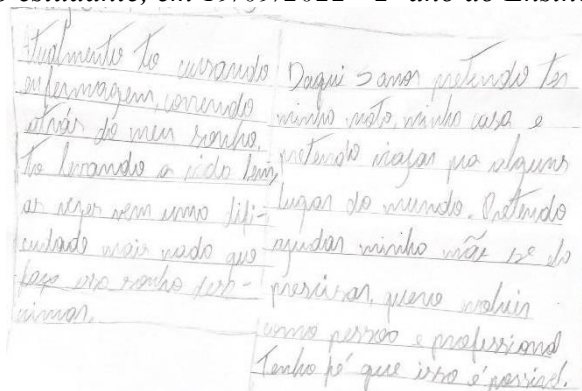 estudante, em 19/09/2022
Atualmente to cursando
enfermagem, correndo
atrás do meu sonho,
to levando a vida bem,
as vezes vem uma difi-
culdade mais nada que
faço esse sonho
Daqui 5 anos pretendo ter
minha moto, minha casa e
pretendo viajar pra alguns
lugar do mundo. Pretendo
ajudar minha mãe se ela
prescisar, quero evoluir
como pessoa e profissional
Tenho fé que isso é possivel.